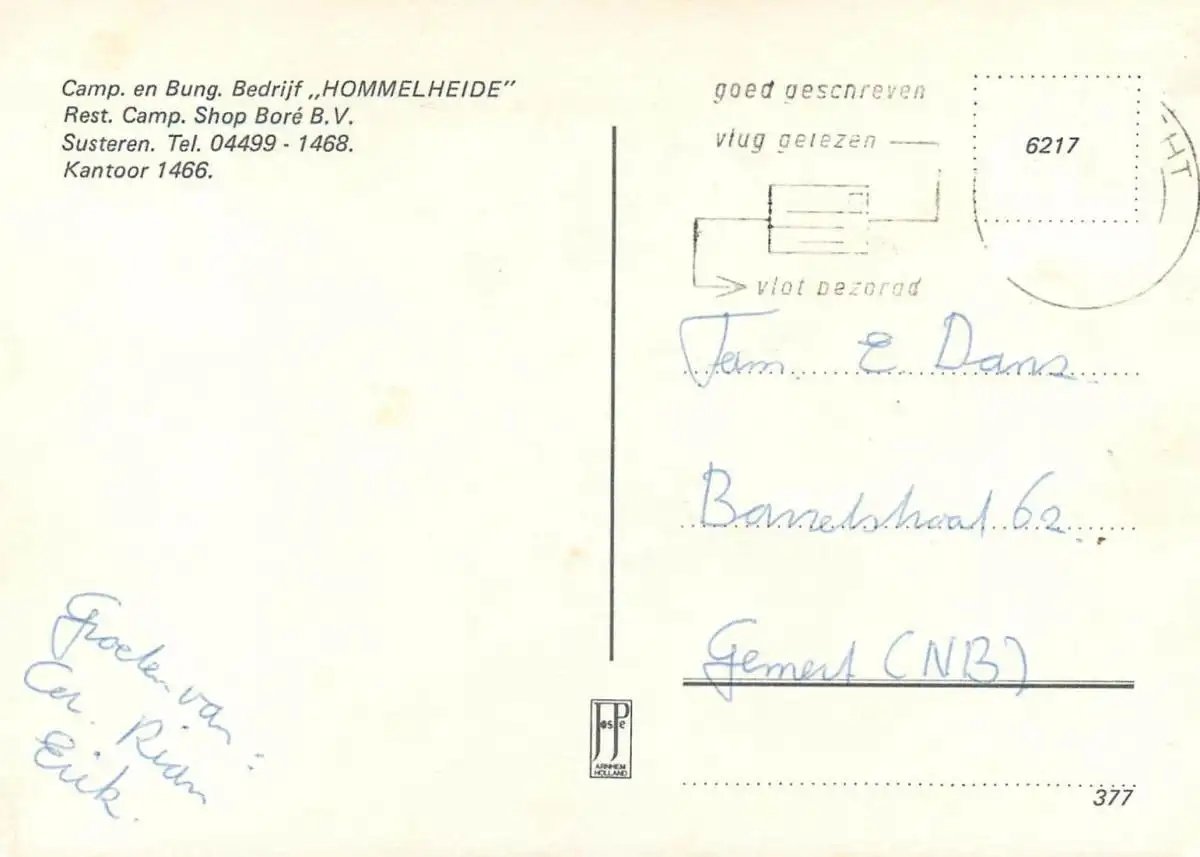 Camp. en Bung. Bedrijf „HOMMELHEIDE”
Rest. Camp. Shop Boré B.V.
Susteren. Tel. 04499 - 1468.
Kantoor 1466.
goed geschreven
vlug gelezen
vlot bezorgd
6217
HT
Fam. E. Dans.
62
Gemert (NB)
Groeten van:
Cer. Rian
Erik.
JosPe
ARNHEM
HOLLAND
377